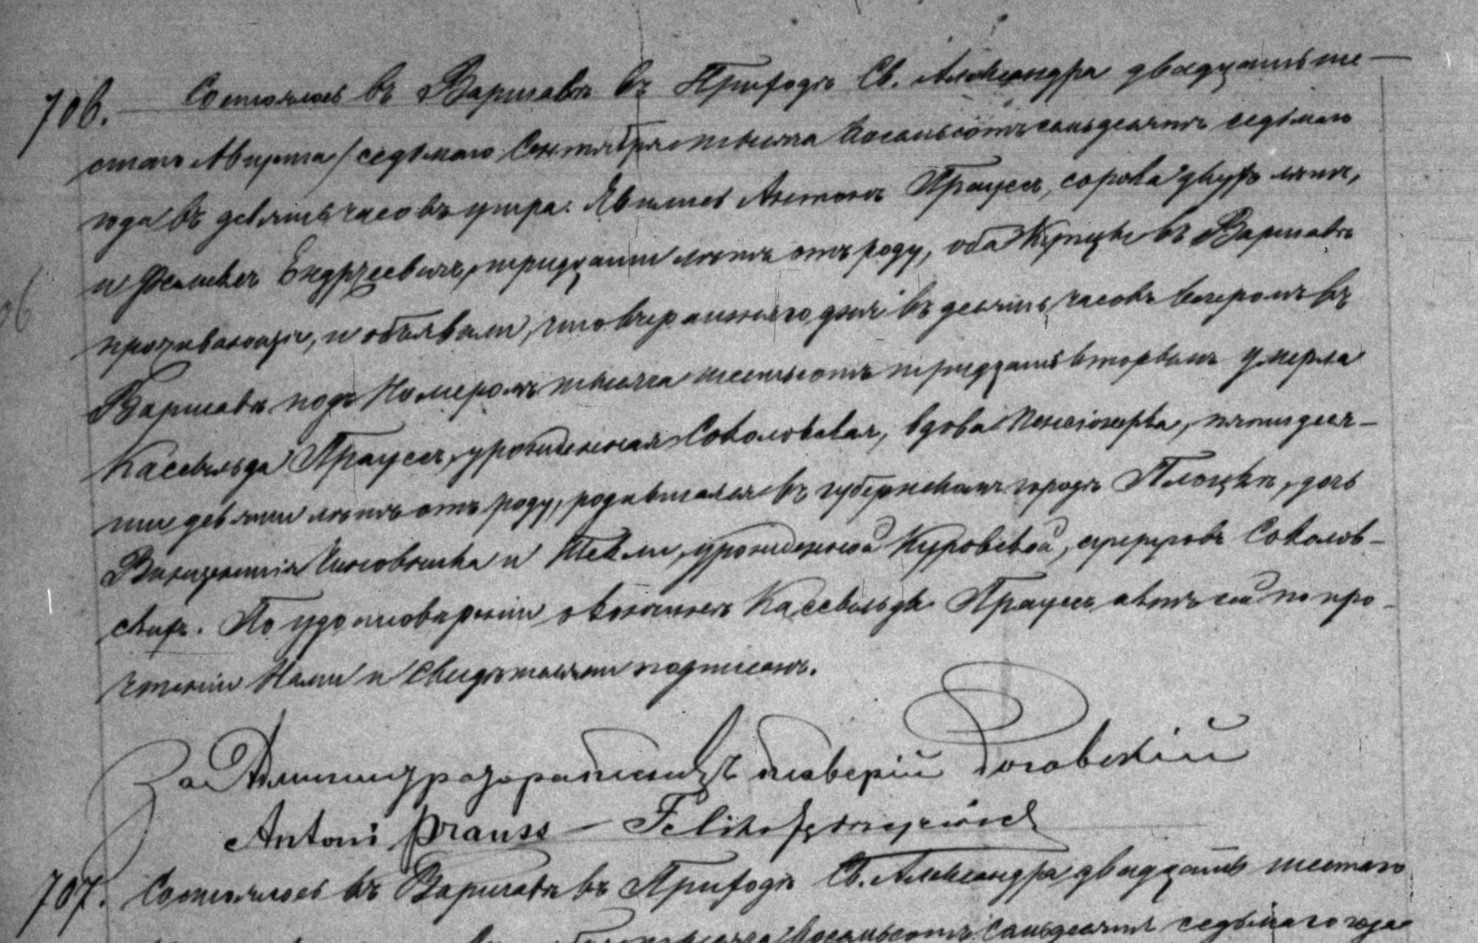 706. Состоялось въ Варшавѣ въ Приходѣ Св. Александра двадцать ше-
стаго Августа / седьмаго Сентября тысяча восемьсотъ семьдесятъ седьмаго
года въ девять часовъ утра. Явились Антонъ Прауссъ, сорока двухъ лѣтъ,
и Феликсъ Ендржеевичъ, тридцати лѣтъ отъ роду, оба Купцы въ Варшавѣ
прочивающіе, и объявили, что вчерашняго дня въ десять часовъ вечеромъ въ
Варшавѣ подъ Номеромъ тысяча шестьсотъ тридцать вторымъ умерла
Кассильда Прауссъ, урожденная Соколовская, вдова Пенсіонерка, пятидеся-
ти девяти лѣтъ отъ роду, родившаяся въ губернскомъ городѣ Плоцкѣ, дочь
Викентія Чиновника и Теклы, урожденной Куровской, супруговъ Соколов-
скихъ. По удостовѣреніи о кончинѣ Кассильды Прауссъ актъ сей по про-
чтеніи Нами и Свидѣтелями подписанъ.
За Администратора Ксаверій Роговскій
Antoni Prauss — Felix Jędrzejewicz
707. Состоялось въ Варшавѣ въ Приходѣ Св. Александра двадцать шестаго
тысяча восемьсотъ семьдесятъ седьмаго года